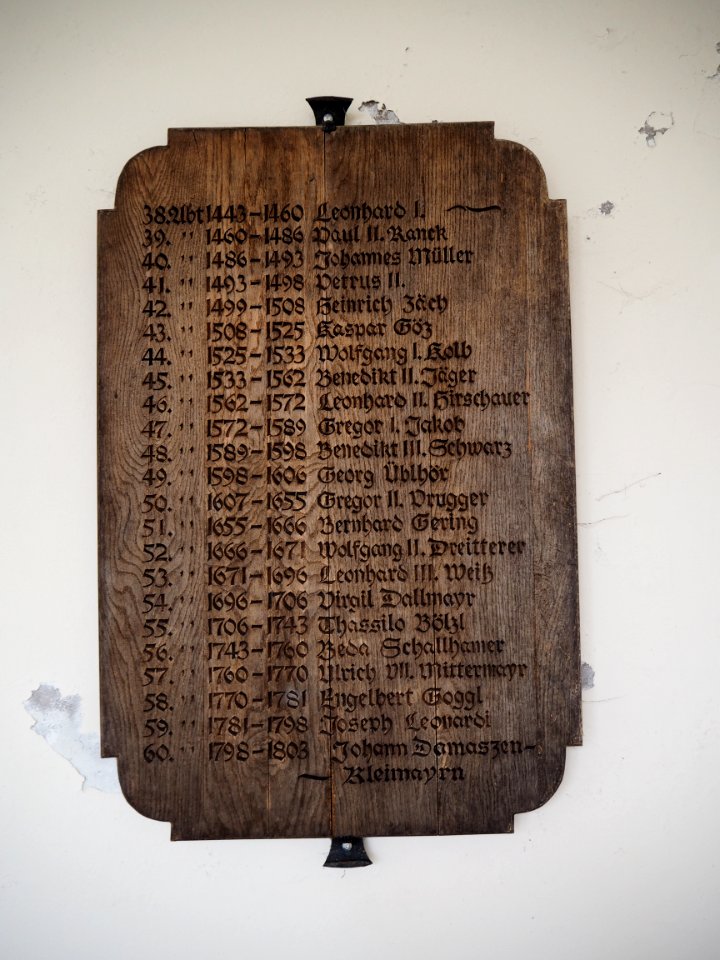 38. Abt 1443-1460 Leonhard I.
39. " 1460-1486 Paul II. Ranck
40. " 1486-1493 Johannes Müller
41. " 1493-1498 Petrus II.
42. " 1499-1508 Heinrich Zäch
43. " 1508-1525 Kaspar Göz
44. " 1525-1533 Wolfgang I. Kolb
45. " 1533-1562 Benedikt II. Jäger
46. " 1562-1572 Leonhard II. Hirschauer
47. " 1572-1589 Gregor I. Jakob
48. " 1589-1598 Benedikt III. Schwarz
49. " 1598-1606 Georg Üblhör
50. " 1607-1655 Gregor II. Prugger
51. " 1655-1666 Bernhard Gering
52. " 1666-1671 Wolfgang II. Dreitterer
53. " 1671-1696 Leonhard III. Weiß
54. " 1696-1706 Virgil Dallmayr
55. " 1706-1743 Thassilo Bölzl
56. " 1743-1760 Beda Schallhamer
57. " 1760-1770 Ulrich VII. Mittermayr
58. " 1770-1781 Engelbert Goggl
59. " 1781-1798 Joseph Leonardi
60. " 1798-1803 Johann Damaszen-
Kleimayrn